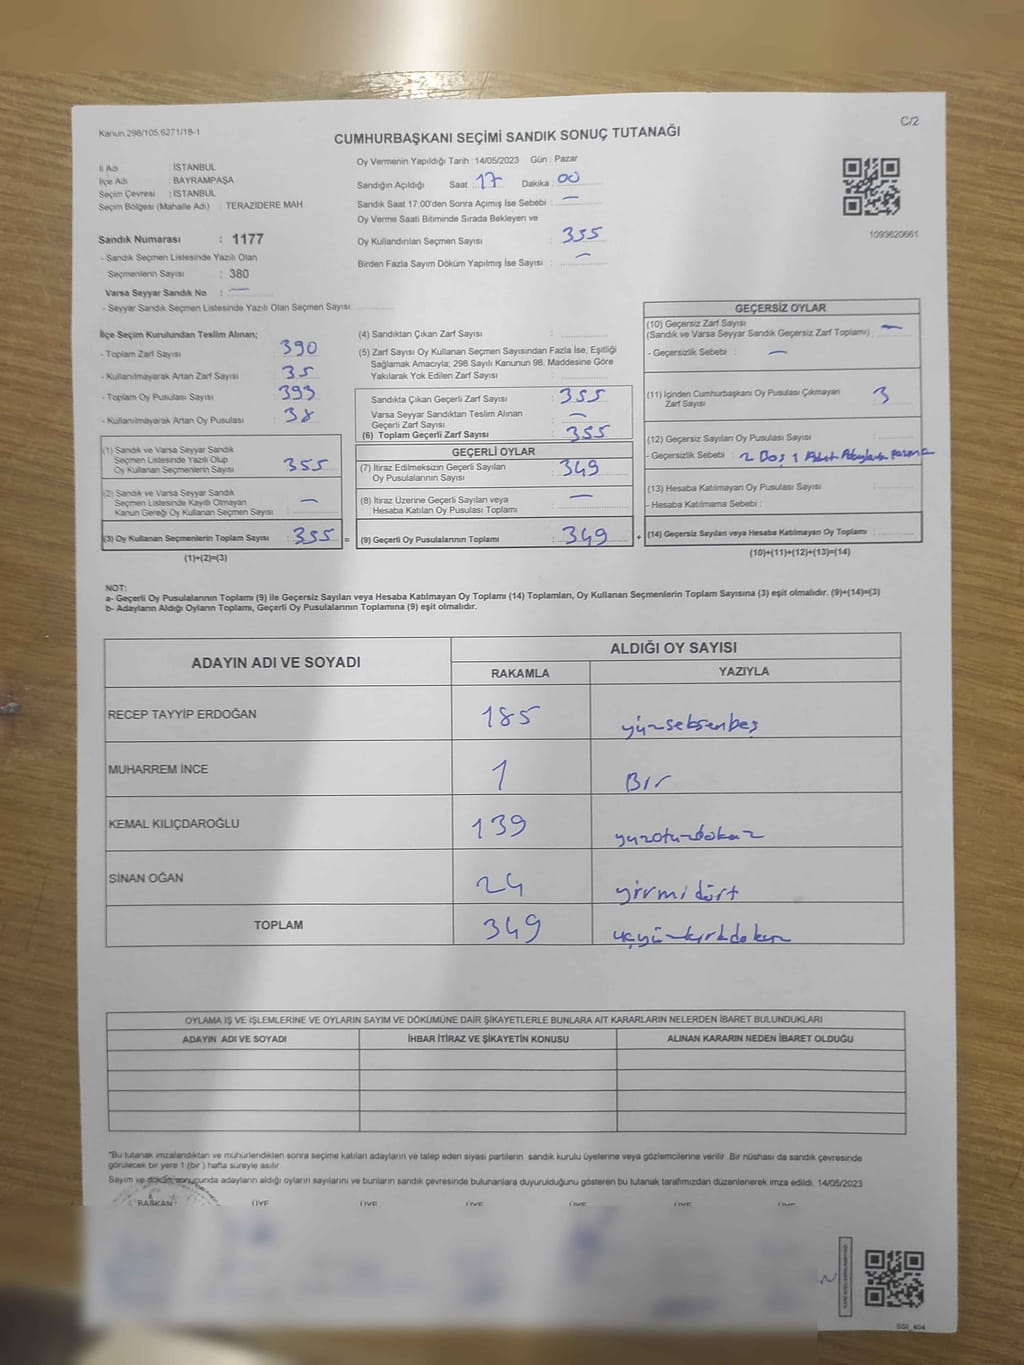 Kanun.298/105,6271/18-1
C/2
CUMHURBAŞKANI SEÇİMİ SANDIK SONUÇ TUTANAĞI
İl Adı : İSTANBUL
İlçe Adı : BAYRAMPAŞA
Seçim Çevresi : İSTANBUL
Seçim Bölgesi (Mahalle Adı) : TERAZİDERE MAH.
Sandık Numarası : 1177
- Sandık Seçmen Listesinde Yazılı Olan
Seçmenlerin Sayısı : 380
Varsa Seyyar Sandık No : —
- Seyyar Sandık Seçmen Listesinde Yazılı Olan Seçmen Sayısı:
Oy Vermenin Yapıldığı Tarih : 14/05/2023 Gün : Pazar
Sandığın Açıldığı Saat : 17 Dakika : 00
Sandık Saat 17.00'den Sonra Açımış İse Sebebi : —
Oy Verme Saati Bitiminde Sırada Bekleyen ve
Oy Kullandırılan Seçmen Sayısı : 355
Birden Fazla Sayım Döküm Yapılmış İse Sayısı : —
1093620661
İlçe Seçim Kurulundan Teslim Alınan;
- Toplam Zarf Sayısı : 390
- Kullanılmayarak Artan Zarf Sayısı : 35
- Toplam Oy Pusulası Sayısı : 393
- Kullanılmayarak Artan Oy Pusulası : 38
(1) Sandık ve Varsa Seyyar Sandık
Seçmen Listesinde Yazılı Olup
Oy Kullanan Seçmenlerin Sayısı : 355
(2) Sandık ve Varsa Seyyar Sandık
Seçmen Listesinde Kayıtlı Olmayan
Kanun Gereği Oy Kullanan Seçmen Sayısı : —
(3) Oy Kullanan Seçmenlerin Toplam Sayısı : 355 =
(1)+(2)=(3)
(4) Sandıktan Çıkan Zarf Sayısı :
(5) Zarf Sayısı Oy Kullanan Seçmen Sayısından Fazla İse, Eşitliği
Sağlamak Amacıyla; 298 Sayılı Kanunun 98. Maddesine Göre
Yakılarak Yok Edilen Zarf Sayısı :
Sandıkta Çıkan Geçerli Zarf Sayısı : 355
Varsa Seyyar Sandıktan Teslim Alınan
Geçerli Zarf Sayısı : —
(6) Toplam Geçerli Zarf Sayısı : 355
GEÇERLİ OYLAR
(7) İtiraz Edilmeksizin Geçerli Sayılan
Oy Pusulalarının Sayısı : 349
(8) İtiraz Üzerine Geçerli Sayılan veya
Hesaba Katılan Oy Pusulası Toplamı : —
(9) Geçerli Oy Pusulalarının Toplamı : 349 +
GEÇERSİZ OYLAR
(10) Geçersiz Zarf Sayısı
(Sandık ve Varsa Seyyar Sandık Geçersiz Zarf Toplamı) : —
- Geçersizlik Sebebi : —
(11) İçinden Cumhurbaşkanı Oy Pusulası Çıkmayan
Zarf Sayısı : 3
(12) Geçersiz Sayılan Oy Pusulası Sayısı :
- Geçersizlik Sebebi : 2 Boş 1 Adet
(13) Hesaba Katılmayan Oy Pusulası Sayısı :
- Hesaba Katılmama Sebebi :
(14) Geçersiz Sayılan veya Hesaba Katılmayan Oy Toplamı :
(10)+(11)+(12)+(13)=(14)
NOT:
a- Geçerli Oy Pusulalarının Toplamı (9) ile Geçersiz Sayılan veya Hesaba Katılmayan Oy Toplamı (14) Toplamları, Oy Kullanan Seçmenlerin Toplam Sayısına (3) eşit olmalıdır. (9)+(14)=(3)
b- Adayların Aldığı Oyların Toplamı, Geçerli Oy Pusulalarının Toplamına (9) eşit olmalıdır.
ADAYIN ADI VE SOYADI
ALDIĞI OY SAYISI
RAKAMLA YAZIYLA
RECEP TAYYİP ERDOĞAN 185 yüzseksenbeş
MUHARREM İNCE 1 Bir
KEMAL KILIÇDAROĞLU 139 yüzotuzdokuz
SİNAN OĞAN 24 yirmidört
TOPLAM 349 üçyüzkırkdokuz
OYLAMA İŞ VE İŞLEMLERİNE VE OYLARIN SAYIM VE DÖKÜMÜNE DAİR ŞİKAYETLERLE BUNLARA AİT KARARLARIN NELERDEN İBARET BULUNDUKLARI
ADAYIN ADI VE SOYADI İHBAR İTİRAZ VE ŞİKAYETİN KONUSU ALINAN KARARIN NEDEN İBARET OLDUĞU
"Bu tutanak imzalandıktan ve mühürlendikten sonra seçime katılan adayların ve talep eden siyasi partilerin sandık kurulu üyelerine veya gözlemcilerine verilir .Bir nüshası da sandık çevresinde
görülecek bir yere 1 (bir ) hafta süreyle asılır.
Sayım ve döküm sonucunda adayların aldığı oyların sayılarını ve bunların sandık çevresinde bulunanlara duyurulduğunu gösteren bu tutanak tarafımızdan düzenlenerek imza edildi. 14/05/2023
BAŞKAN ÜYE ÜYE ÜYE ÜYE ÜYE ÜYE